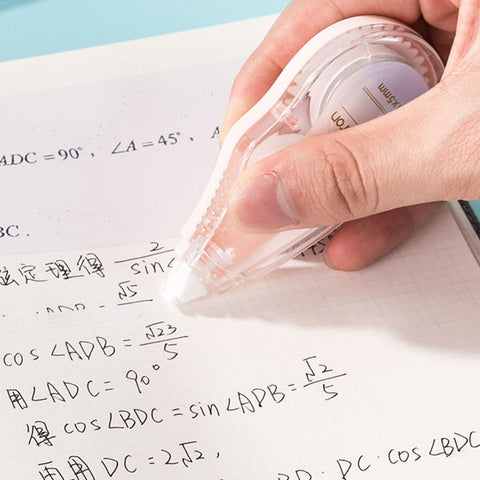 ADC = 90°, ∠A = 45°, A
BC.
定理得 2/sin∠
√5
cos∠ADB = √23/5
用∠ADC = 90°
得 cos∠BDC = sin∠ADB = √2/5
再用 DC = 2√2,
BD · DC · cos∠BDC
ron
×5mm